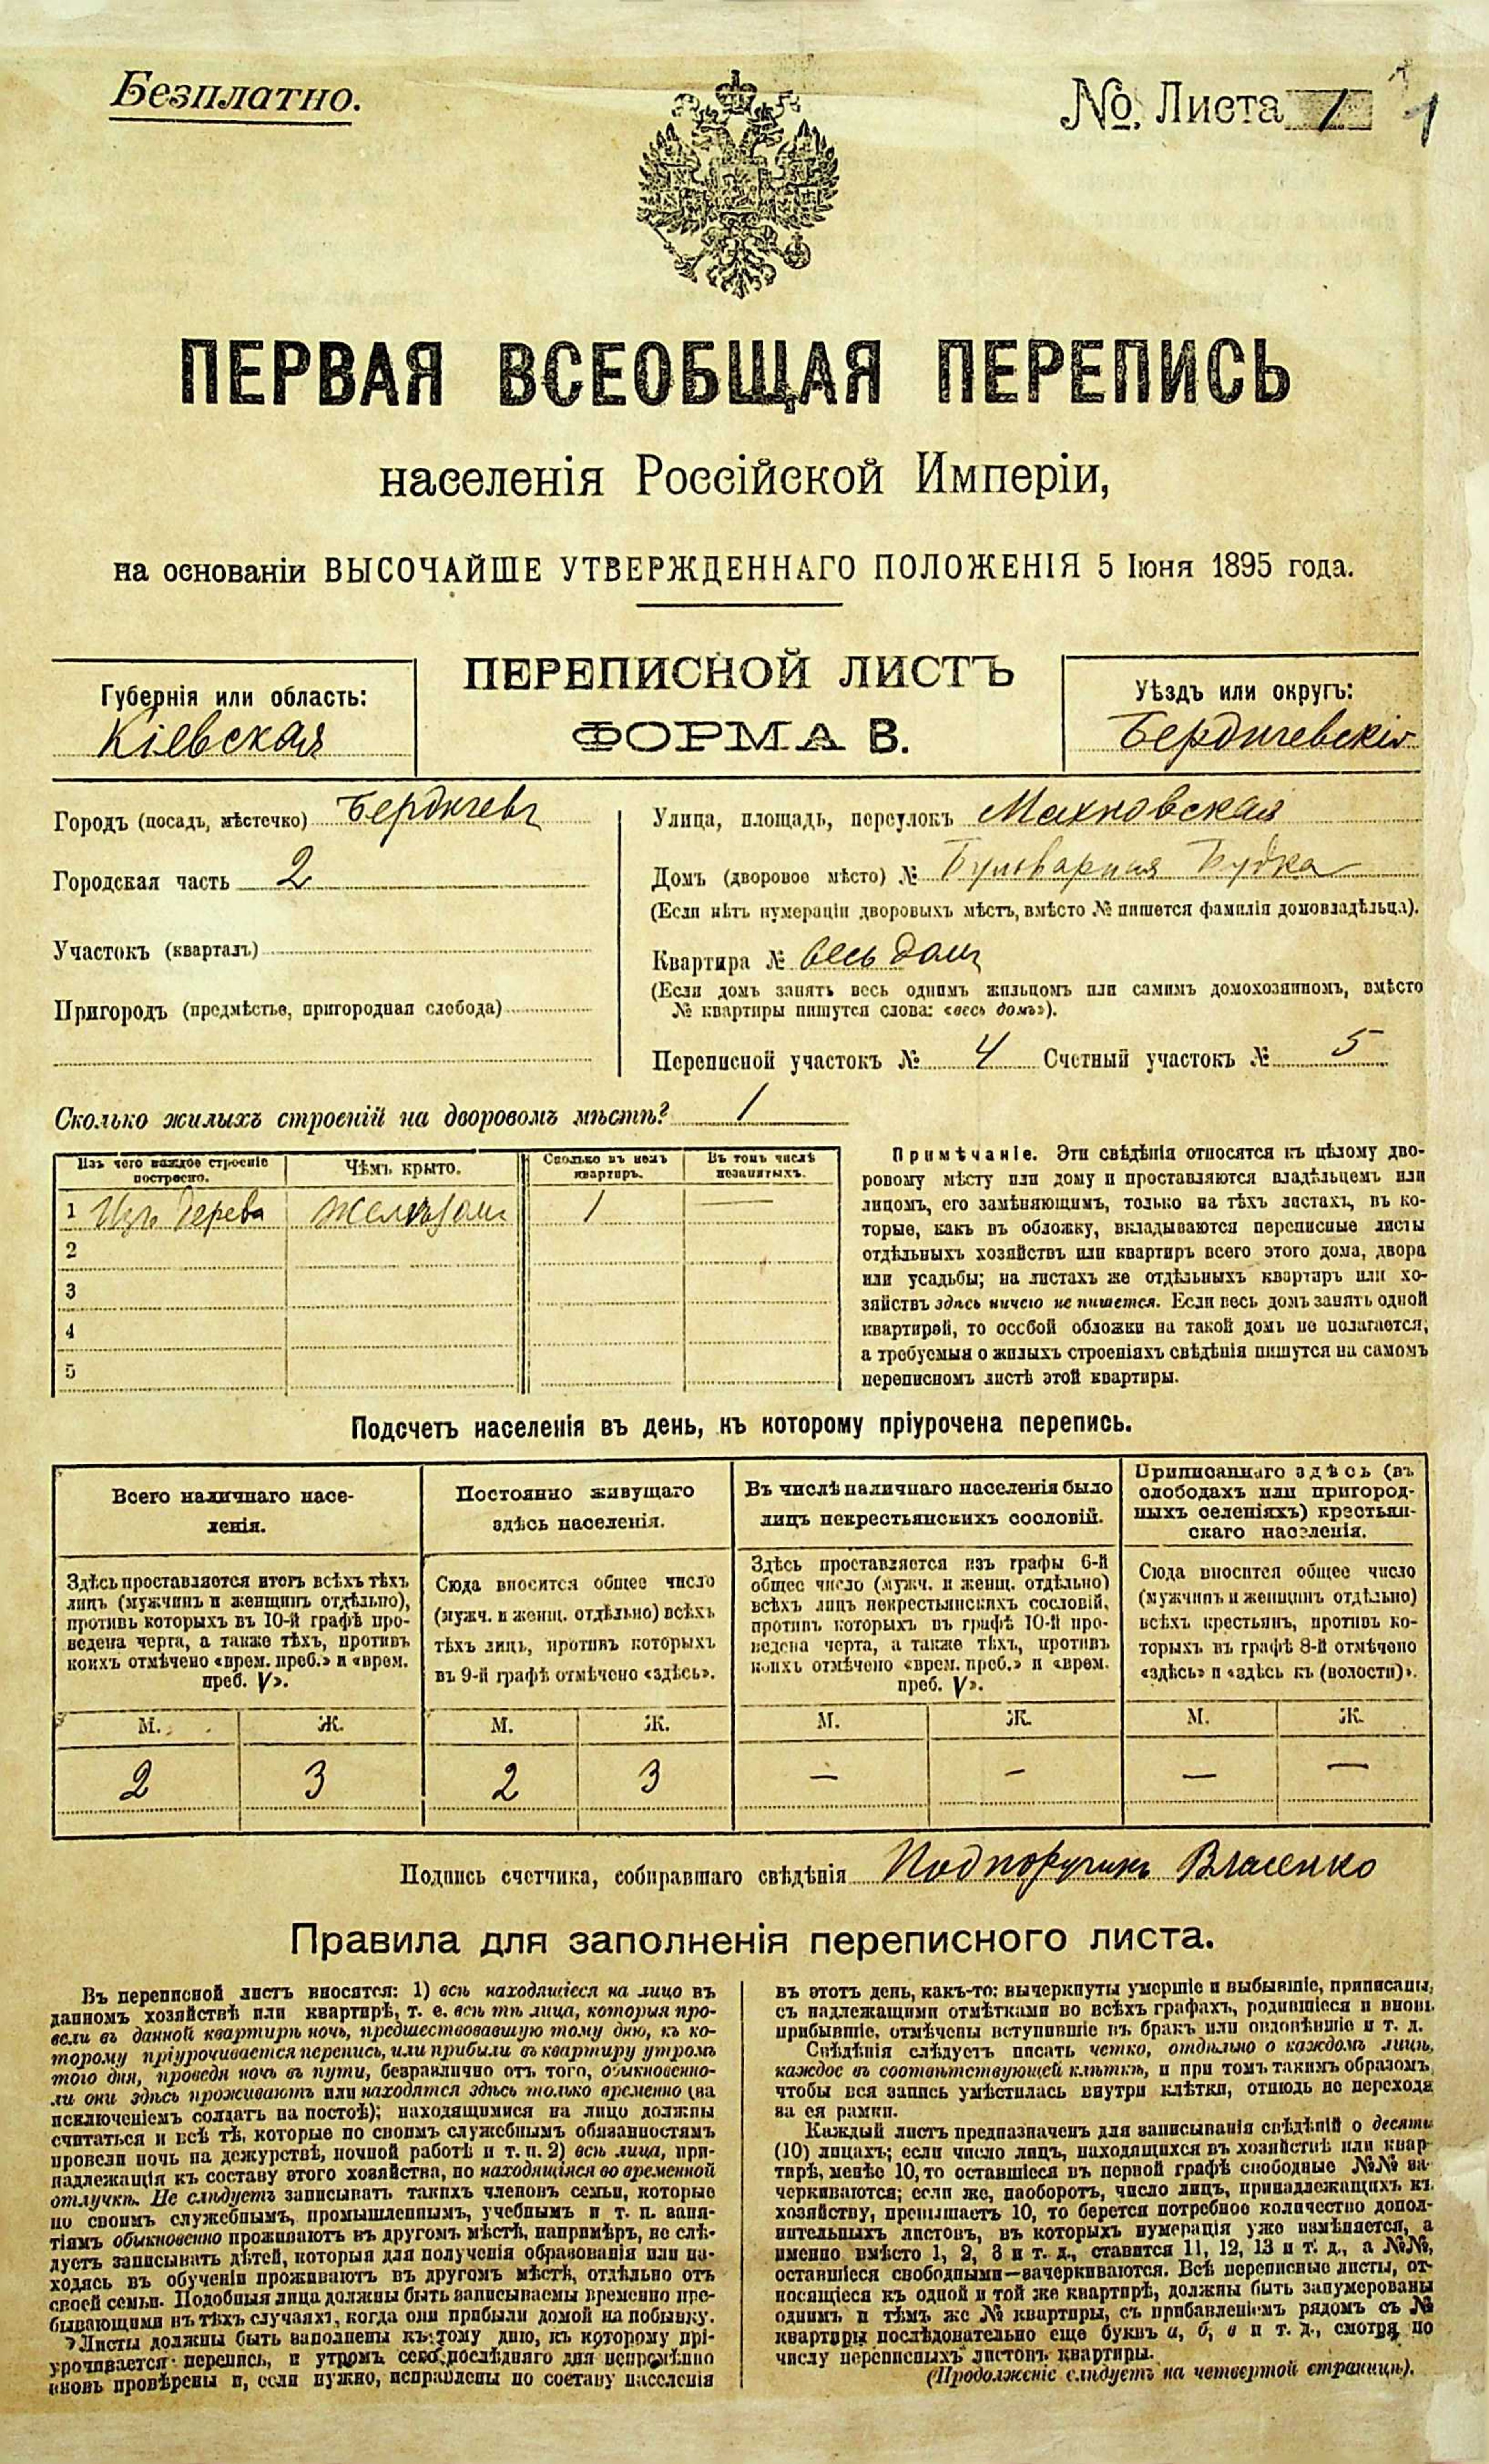 Безплатно.
№ Листа 1 1
ПЕРВАЯ ВСЕОБЩАЯ ПЕРЕПИСЬ
населенія Россійской Имперіи,
на основаніи ВЫСОЧАЙШЕ УТВЕРЖДЕННАГО ПОЛОЖЕНІЯ 5 Іюня 1895 года.
Губернія или область:
Кіевская
ПЕРЕПИСНОЙ ЛИСТЪ
ФОРМА В.
Уѣздъ или округъ:
Бердичевскій
Городъ (посадъ, мѣстечко) Бердичевъ
Городская часть 2
Участокъ (кварталъ)
Пригородъ (предмѣстье, пригородная слобода)
Улица, площадь, переулокъ Махновская
Домъ (дворовое мѣсто) № Бульварная Будка
(Если нѣтъ нумераціи дворовыхъ мѣстъ, вмѣсто № пишется фамилія домовладѣльца).
Квартира № весь домъ
(Если домъ занятъ весь однимъ жильцомъ или самимъ домохозяиномъ, вмѣсто
№ квартиры пишутся слова: «весь домъ»).
Переписной участокъ № 4 Счетный участокъ № 5
Сколько жилыхъ строеній на дворовомъ мѣстѣ? 1
Изъ чего каждое строеніе
построено.
Чѣмъ крыто.
Сколько въ немъ
квартиръ.
Въ томъ числѣ
незанятыхъ.
1 Изъ дерева желѣзомъ 1 —
2
3
4
5
Примѣчаніе. Эти свѣдѣнія относятся къ цѣлому дво-
ровому мѣсту или дому и проставляются владѣльцемъ или
лицомъ, его замѣняющимъ, только на тѣхъ листахъ, въ ко-
торые, какъ въ обложку, вкладываются переписные листы
отдѣльныхъ хозяйствъ или квартиръ всего этого дома, двора
или усадьбы; на листахъ же отдѣльныхъ квартиръ или хо-
зяйствъ здѣсь ничего не пишется. Если весь домъ занятъ одной
квартирой, то особой обложки на такой домъ не полагается,
а требуемыя о жилыхъ строеніяхъ свѣдѣнія пишутся на самомъ
переписномъ листѣ этой квартиры.
Подсчетъ населенія въ день, къ которому пріурочена перепись.
Всего наличнаго насе-
ленія.
Здѣсь проставляется итогъ всѣхъ тѣхъ
лицъ (мужчинъ и женщинъ отдѣльно),
противъ которыхъ въ 10-й графѣ про-
ведена черта, а также тѣхъ, противъ
коихъ отмѣчено «врем. преб.» и «врем.
преб. V».
М. Ж.
2 3
Постоянно живущаго
здѣсь населенія.
Сюда вносится общее число
(мужч. и женщ. отдѣльно) всѣхъ
тѣхъ лицъ, противъ которыхъ
въ 9-й графѣ отмѣчено «здѣсь».
М. Ж.
2 3
Въ числѣ наличнаго населенія было
лицъ некрестьянскихъ сословій.
Здѣсь проставляется изъ графы 6-й
общее число (мужч. и женщ. отдѣльно)
всѣхъ лицъ некрестьянскихъ сословій,
противъ которыхъ въ графѣ 10-й про-
ведена черта, а также тѣхъ, противъ
коихъ отмѣчено «врем. преб.» и «врем.
преб. V».
М. Ж.
— —
Приписаннаго здѣсь (въ
слободахъ или пригород-
ныхъ селеніяхъ) крестьян-
скаго населенія.
Сюда вносится общее число
(мужчинъ и женщинъ отдѣльно)
всѣхъ крестьянъ, противъ ко-
торыхъ въ графѣ 8-й отмѣчено
«здѣсь» и «здѣсь къ (волости)».
М. Ж.
— —
Подпись счетчика, собиравшаго свѣдѣнія Подпоручикъ Власенко
Правила для заполненія переписного листа.
Въ переписной листъ вносятся: 1) всѣ находящіеся на лицо въ
данномъ хозяйствѣ или квартирѣ, т. е. всѣ тѣ лица, которыя про-
вели въ данной квартирѣ ночь, предшествовавшую тому дню, къ ко-
торому пріурочивается перепись, или прибыли въ квартиру утромъ
того дня, проведя ночь въ пути, безразлично отъ того, обыкновенно-
ли они здѣсь проживаютъ или находятся здѣсь только временно (за
исключеніемъ солдатъ на постоѣ); находящимися на лицо должны
считаться и всѣ тѣ, которые по своимъ служебнымъ обязанностямъ
провели ночь на дежурствѣ, ночной работѣ и т. п. 2) всѣ лица, при-
надлежащія къ составу этого хозяйства, но находящіяся во временной
отлучкѣ. Не слѣдуетъ записывать такихъ членовъ семьи, которые
по своимъ служебнымъ, промышленнымъ, учебнымъ и т. п. заня-
тіямъ обыкновенно проживаютъ въ другомъ мѣстѣ, напримѣръ, не слѣ-
дуетъ записывать дѣтей, которыя для полученія образованія или на-
ходясь въ обученіи проживаютъ въ другомъ мѣстѣ, отдѣльно отъ
своей семьи. Подобныя лица должны быть записываемы временно пре-
бывающими въ тѣхъ случаяхъ, когда они прибыли домой на побывку.
Листы должны быть заполнены къ тому дню, къ которому прі-
урочивается перепись, и утромъ сего послѣдняго дня непремѣнно
вновь провѣрены и, если нужно, исправлены по составу населенія
въ этотъ день, какъ-то: вычеркнуты умершіе и выбывшіе, приписаны,
съ надлежащими отмѣтками во всѣхъ графахъ, родившіеся и вновь
прибывшіе, отмѣчены вступившіе въ бракъ или овдовѣвшіе и т. д.
Свѣдѣнія слѣдуетъ писать четко, отдѣльно о каждомъ лицѣ,
каждое въ соотвѣтствующей клѣткѣ, и при томъ такимъ образомъ,
чтобы вся запись умѣстилась внутри клѣтки, отнюдь не переходя
за ея рамки.
Каждый листъ предназначенъ для записыванія свѣдѣній о десяти
(10) лицахъ; если число лицъ, находящихся въ хозяйствѣ или квар-
тирѣ, менѣе 10, то оставшіеся въ первой графѣ свободные №№ за-
черкиваются; если же, наоборотъ, число лицъ, принадлежащихъ къ
хозяйству, превышаетъ 10, то берется потребное количество допол-
нительныхъ листовъ, въ которыхъ нумерація уже измѣняется, а
именно вмѣсто 1, 2, 3 и т. д., ставится 11, 12, 13 и т. д., а №№,
оставшіеся свободными—зачеркиваются. Всѣ переписные листы, от-
носящіеся къ одной и той же квартирѣ, должны быть занумерованы
однимъ и тѣмъ же № квартиры, съ прибавленіемъ рядомъ съ №
квартиры послѣдовательно еще буквъ а, б, в и т. д., смотря по
числу переписныхъ листовъ квартиры.
(Продолженіе слѣдуетъ на четвертой страницѣ).